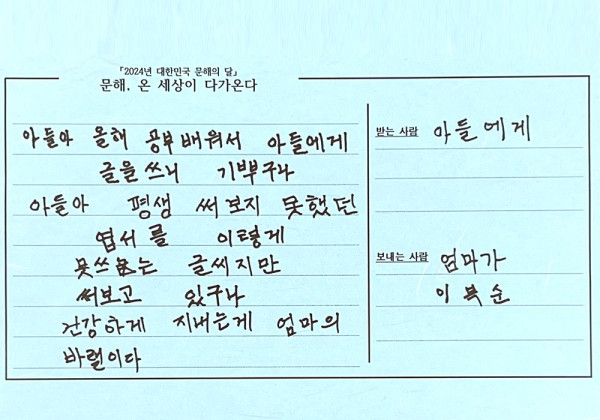 『2024년 대한민국 문해의 달』
문해, 온 세상이 다가온다
아들아 올해 공부배워서 아들에게
글을 쓰니 기쁘구나
아들아 평생 써보지 못했던
엽서를 이렇게
못쓰는 글씨지만
써보고 있구나
건강하게 지내는게 엄마의
바램이다
받는 사람 아들에게
보내는 사람 엄마가
이복순